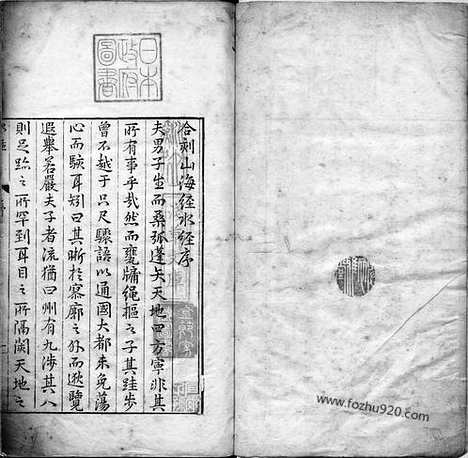 日本
政府
圖書
合刻山海經水經序
夫男子生而桑弧蓬矢天地四方寧非其
所有事乎哉然而甕牖繩樞之子其跬步
曾不越于只尺驟語以通國大都未免蕩
心而駭耳矧曰其晰於寥廓之外而遐覽
遐舉若嚴夫子者流猶曰州有九涉其八
則足跡之所罕到耳目之所隔閡天地之
www.fozhu920.com